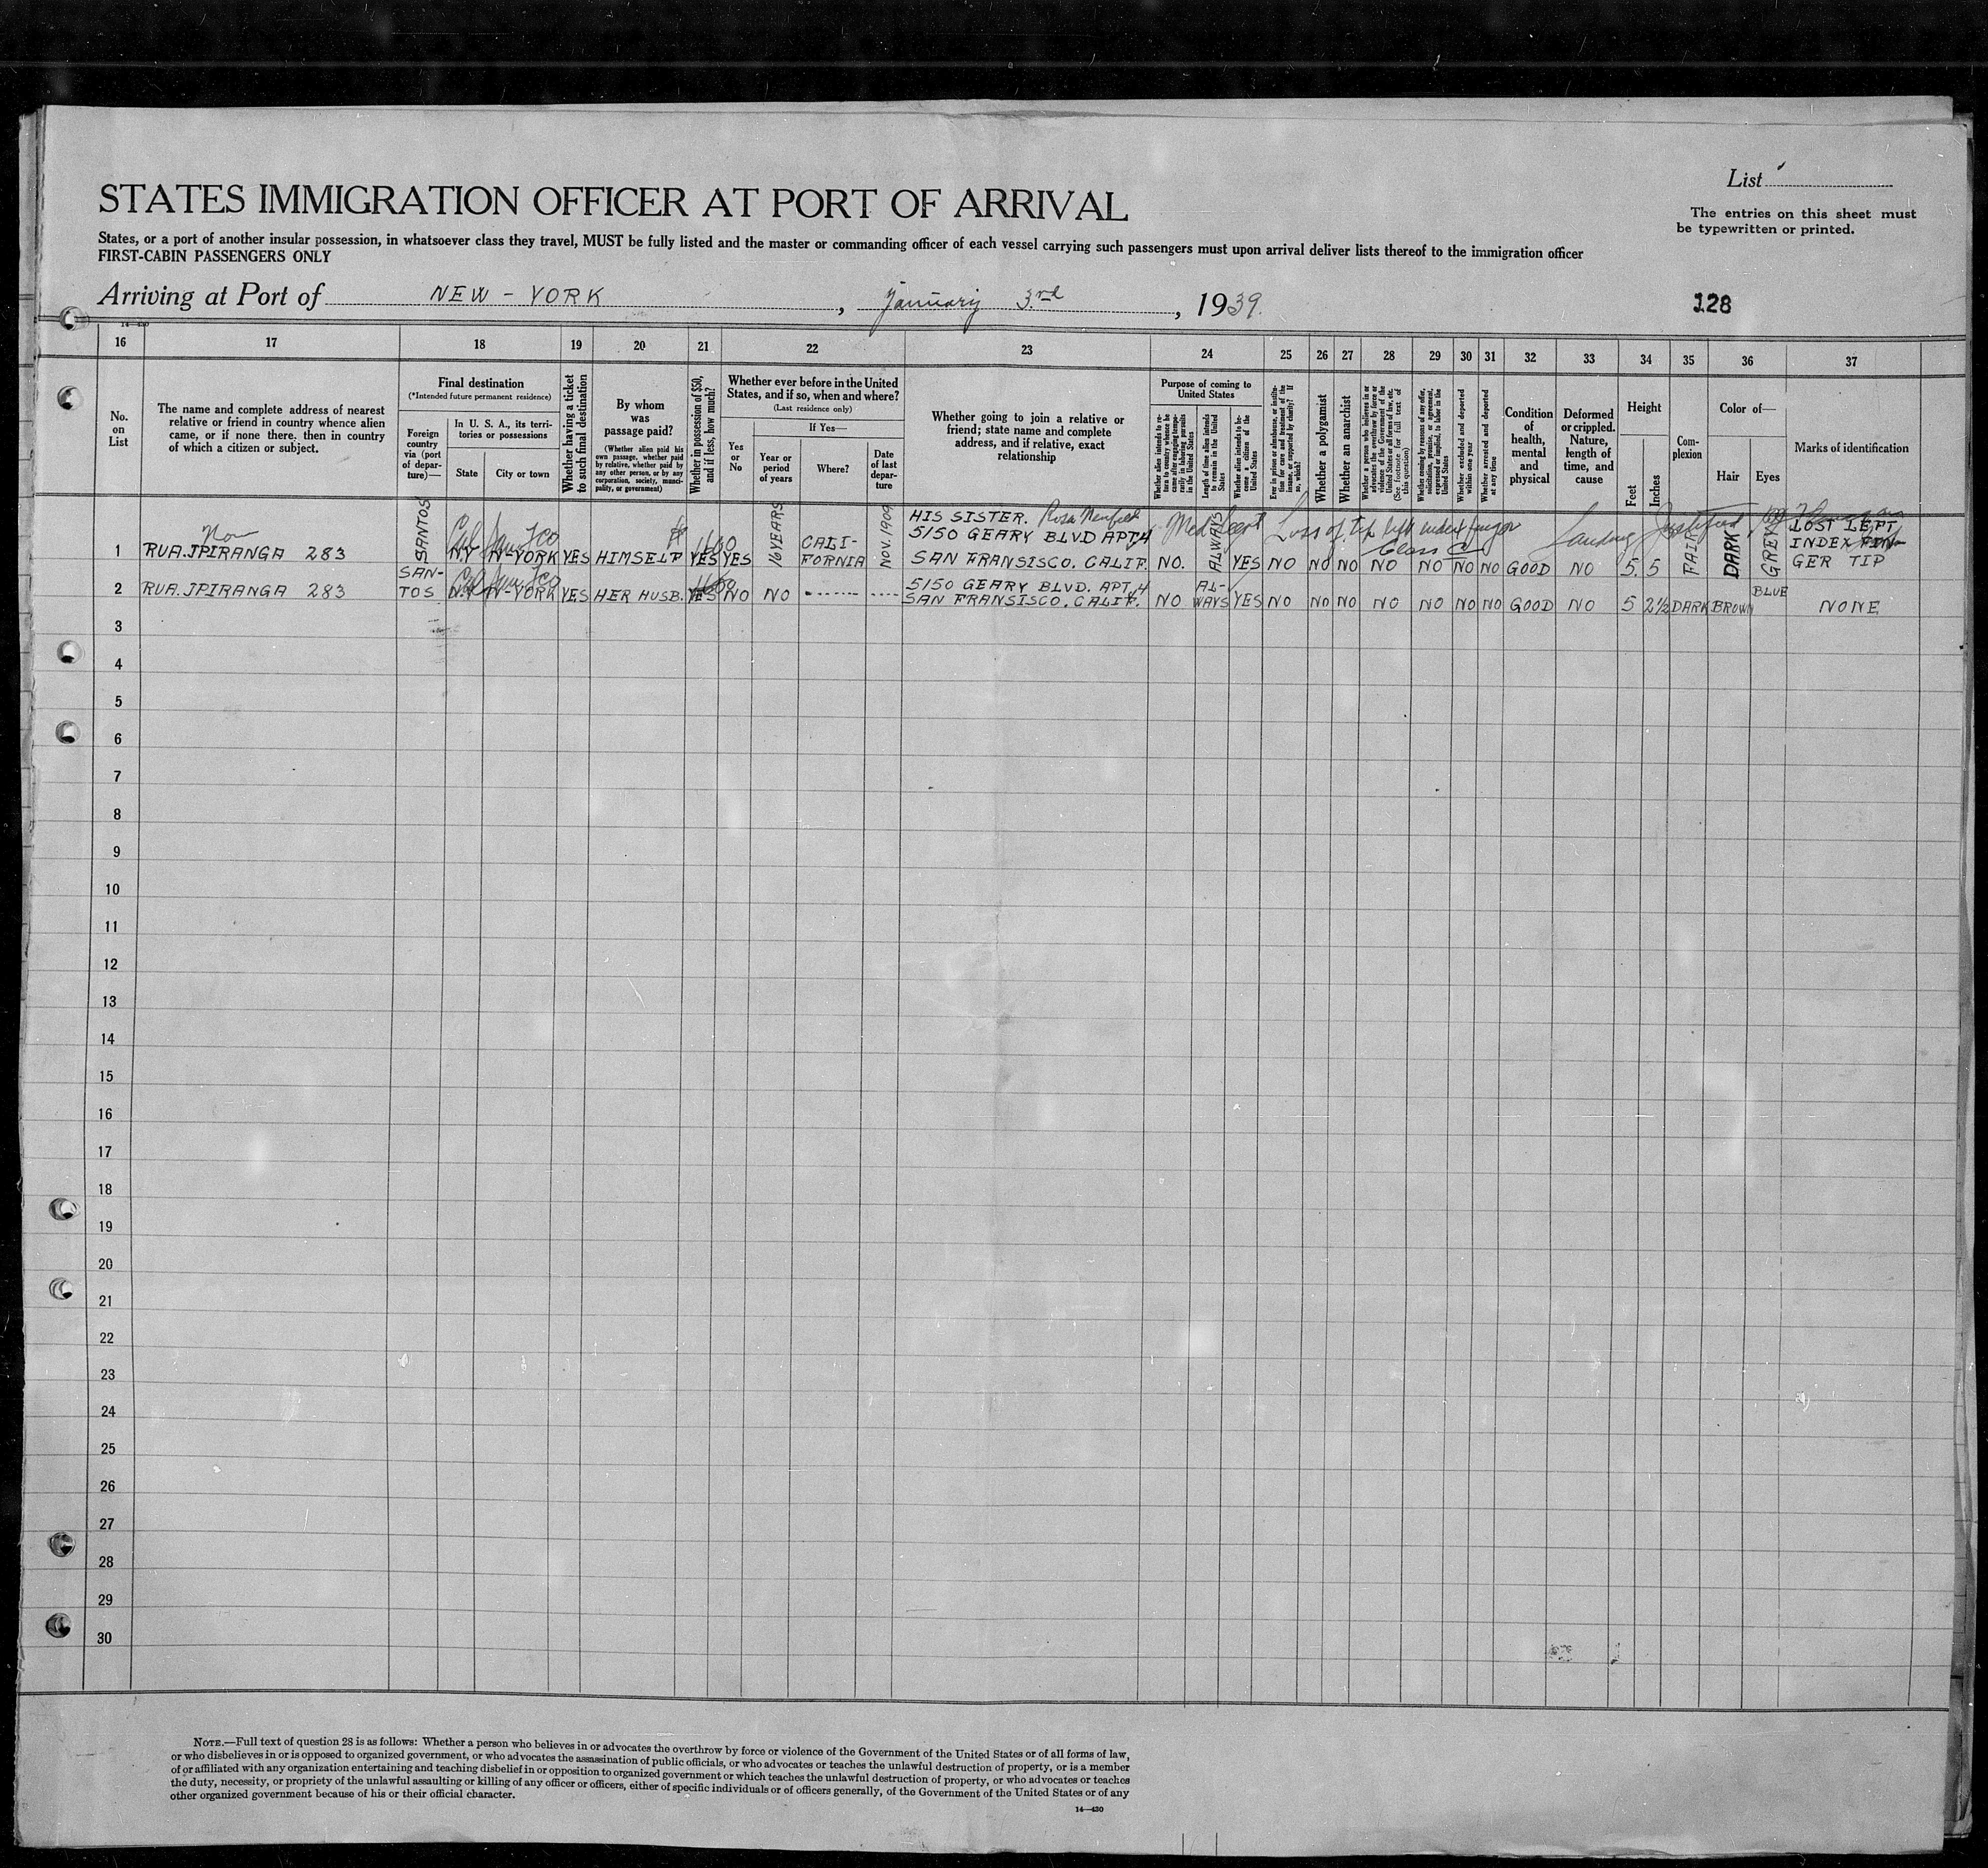 List
The entries on this sheet must
be typewritten or printed.
STATES IMMIGRATION OFFICER AT PORT OF ARRIVAL
States, or a port of another insular possession, in whatsoever class they travel, MUST be fully listed and the master or commanding officer of each vessel carrying such passengers must upon arrival deliver lists thereof to the immigration officer
FIRST-CABIN PASSENGERS ONLY
Arriving at Port of NEW-YORK, January 3rd, 1939.
128
14—430
16 17 18 19 20 21 22 23 24 25 26 27 28 29 30 31 32 33 34 35 36 37
No. on List
The name and complete address of nearest
relative or friend in country whence alien
came, or if none there, then in country
of which a citizen or subject.
Final destination
(*Intended future permanent residence)
Foreign country via (port of departure)—
In U. S. A., its territories or possessions
State
City or town
Whether having a ticket to such final destination
By whom was passage paid?
(Whether alien paid his own passage, whether paid by relative, whether paid by any other person, or by any corporation, society, municipality, or government)
Whether in possession of $50, and if less, how much?
Whether ever before in the United
States, and if so, when and where?
(Last residence only)
Yes or No
If Yes—
Year or period of years
Where?
Date of last departure
Whether going to join a relative or
friend; state name and complete
address, and if relative, exact
relationship
Purpose of coming to United States
Whether alien intends to return to country whence he came after engaging temporarily in laboring pursuits in the United States
Length of time alien intends to remain in the United States
Whether alien intends to become a citizen of the United States
Ever in prison or almshouse, or institution for care and treatment of the insane, or supported by charity? If so, which?
Whether a polygamist
Whether an anarchist
Whether a person who believes in or advocates the overthrow by force or violence of the Government of the United States or all forms of law, etc. (See footnote for full text of this question)
Whether coming by reasons of any offer, solicitation, promise, or agreement, expressed or implied, to labor in the United States
Whether excluded and deported within one year
Whether arrested and deported at any time
Condition of health, mental and physical
Deformed or crippled. Nature, length of time, and cause
Height
Feet
Inches
Complexion
Color of—
Hair
Eyes
Marks of identification
1 RUA.JPIRANGA 283 SANTOS Cal NY San Fco N-YORK YES HIMSELF $ 1600 YES YES 16 YEARS CALI-FORNIA NOV. 1909
HIS SISTER. Rosa
5150 GEARY BLVD APT.4
SAN FRANSISCO. CALIF. NO. ALWAYS YES NO NO NO NO NO NO NO GOOD NO 5. 5 FAIR DARK GREY
LOST LEFT
INDEX FIN-
GER TIP
Loss of tip left index finger
Class C
Landing Justified
2 RUA.JPIRANGA 283 SAN-TOS Cal NY San Fco N-YORK YES HER HUSB. YES NO NO
5150 GEARY BLVD. APT.4
SAN FRANSISCO. CALIF. NO AL-WAYS YES NO NO NO NO NO NO NO GOOD NO 5 2½ DARK BROWN BLUE NONE
3
4
5
6
7
8
9
10
11
12
13
14
15
16
17
18
19
20
21
22
23
24
25
26
27
28
29
30
NOTE.—Full text of question 28 is as follows: Whether a person who believes in or advocates the overthrow by force or violence of the Government of the United States or of all forms of law,
or who disbelieves in or is opposed to organized government, or who advocates the assassination of public officials, or who advocates or teaches the unlawful destruction of property, or is a member
of or affiliated with any organization entertaining and teaching disbelief in or opposition to organized government or which teaches the unlawful destruction of property, or who advocates or teaches
the duty, necessity, or propriety of the unlawful assaulting or killing of any officer or officers, either of specific individuals or of officers generally, of the Government of the United States or of any
other organized government because of his or their official character.
14—430